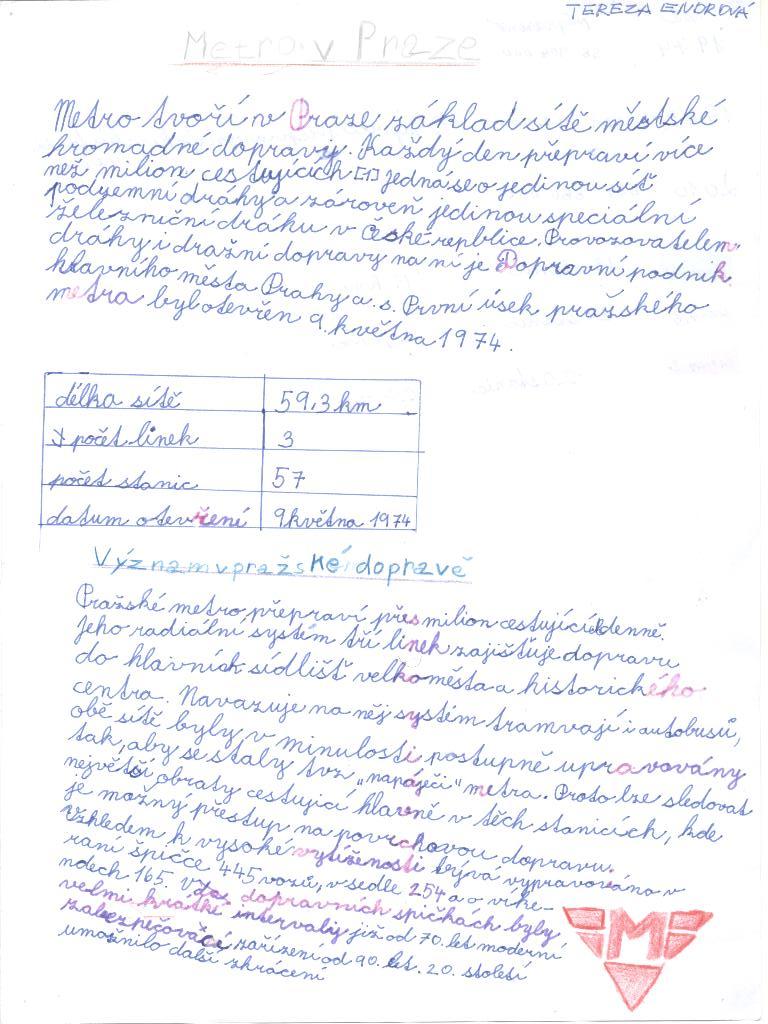 TEREZA ENDROVÁ
Metro v Praze
Metro tvoří v Praze základ sítě městské
hromadné dopravy. Každý den přepraví více
než milion cestujících [1] jedná se o jedinou síť
podzemní dráhy a zároveň jedinou speciální
železniční dráhu v České repblice. Provozovatelem
dráhy i dražní dopravy na ní je Dopravní podnik
hlavního města Prahy a.s. První úsek pražského
metra byl otevřen 9. května 1974.
délka sítě 59,3 km
počet linek 3
počet stanic 57
datum otevření 9 května 1974
Význam v pražské dopravě
Pražské metro přepraví přes milion cestující denně.
Jeho radiální systém tří linek zajišťuje dopravu
do hlavních sídlišť velkoměsta a historického
centra. Navazuje na něj systém tramvají i autobusů,
obě sítě byly v minulosti postupně upravovány
tak, aby se staly tvz „napáječi" metra. Proto lze sledovat
největší obraty cestující hlavně v těch stanicích, kde
je možný přestup na povrchovou dopravu.
Vzhledem k vysoké vytíženosti bývá vypravována v
raní špičce 445 vozů, v sedle 254 a o víke-
ndech 165. V dopravních špičkách byly
velmi krátké intervaly již od 70. let moderní
zabezpečovací zařízení od 90. let. 20. století
umožnilo další zkrácení
M